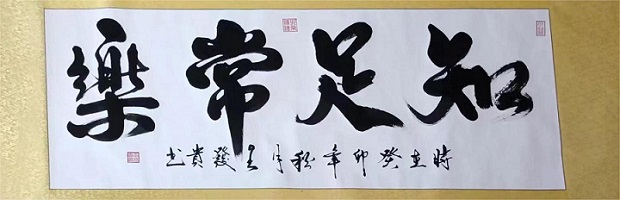 知足常樂
時在癸卯年秋月王發貴書